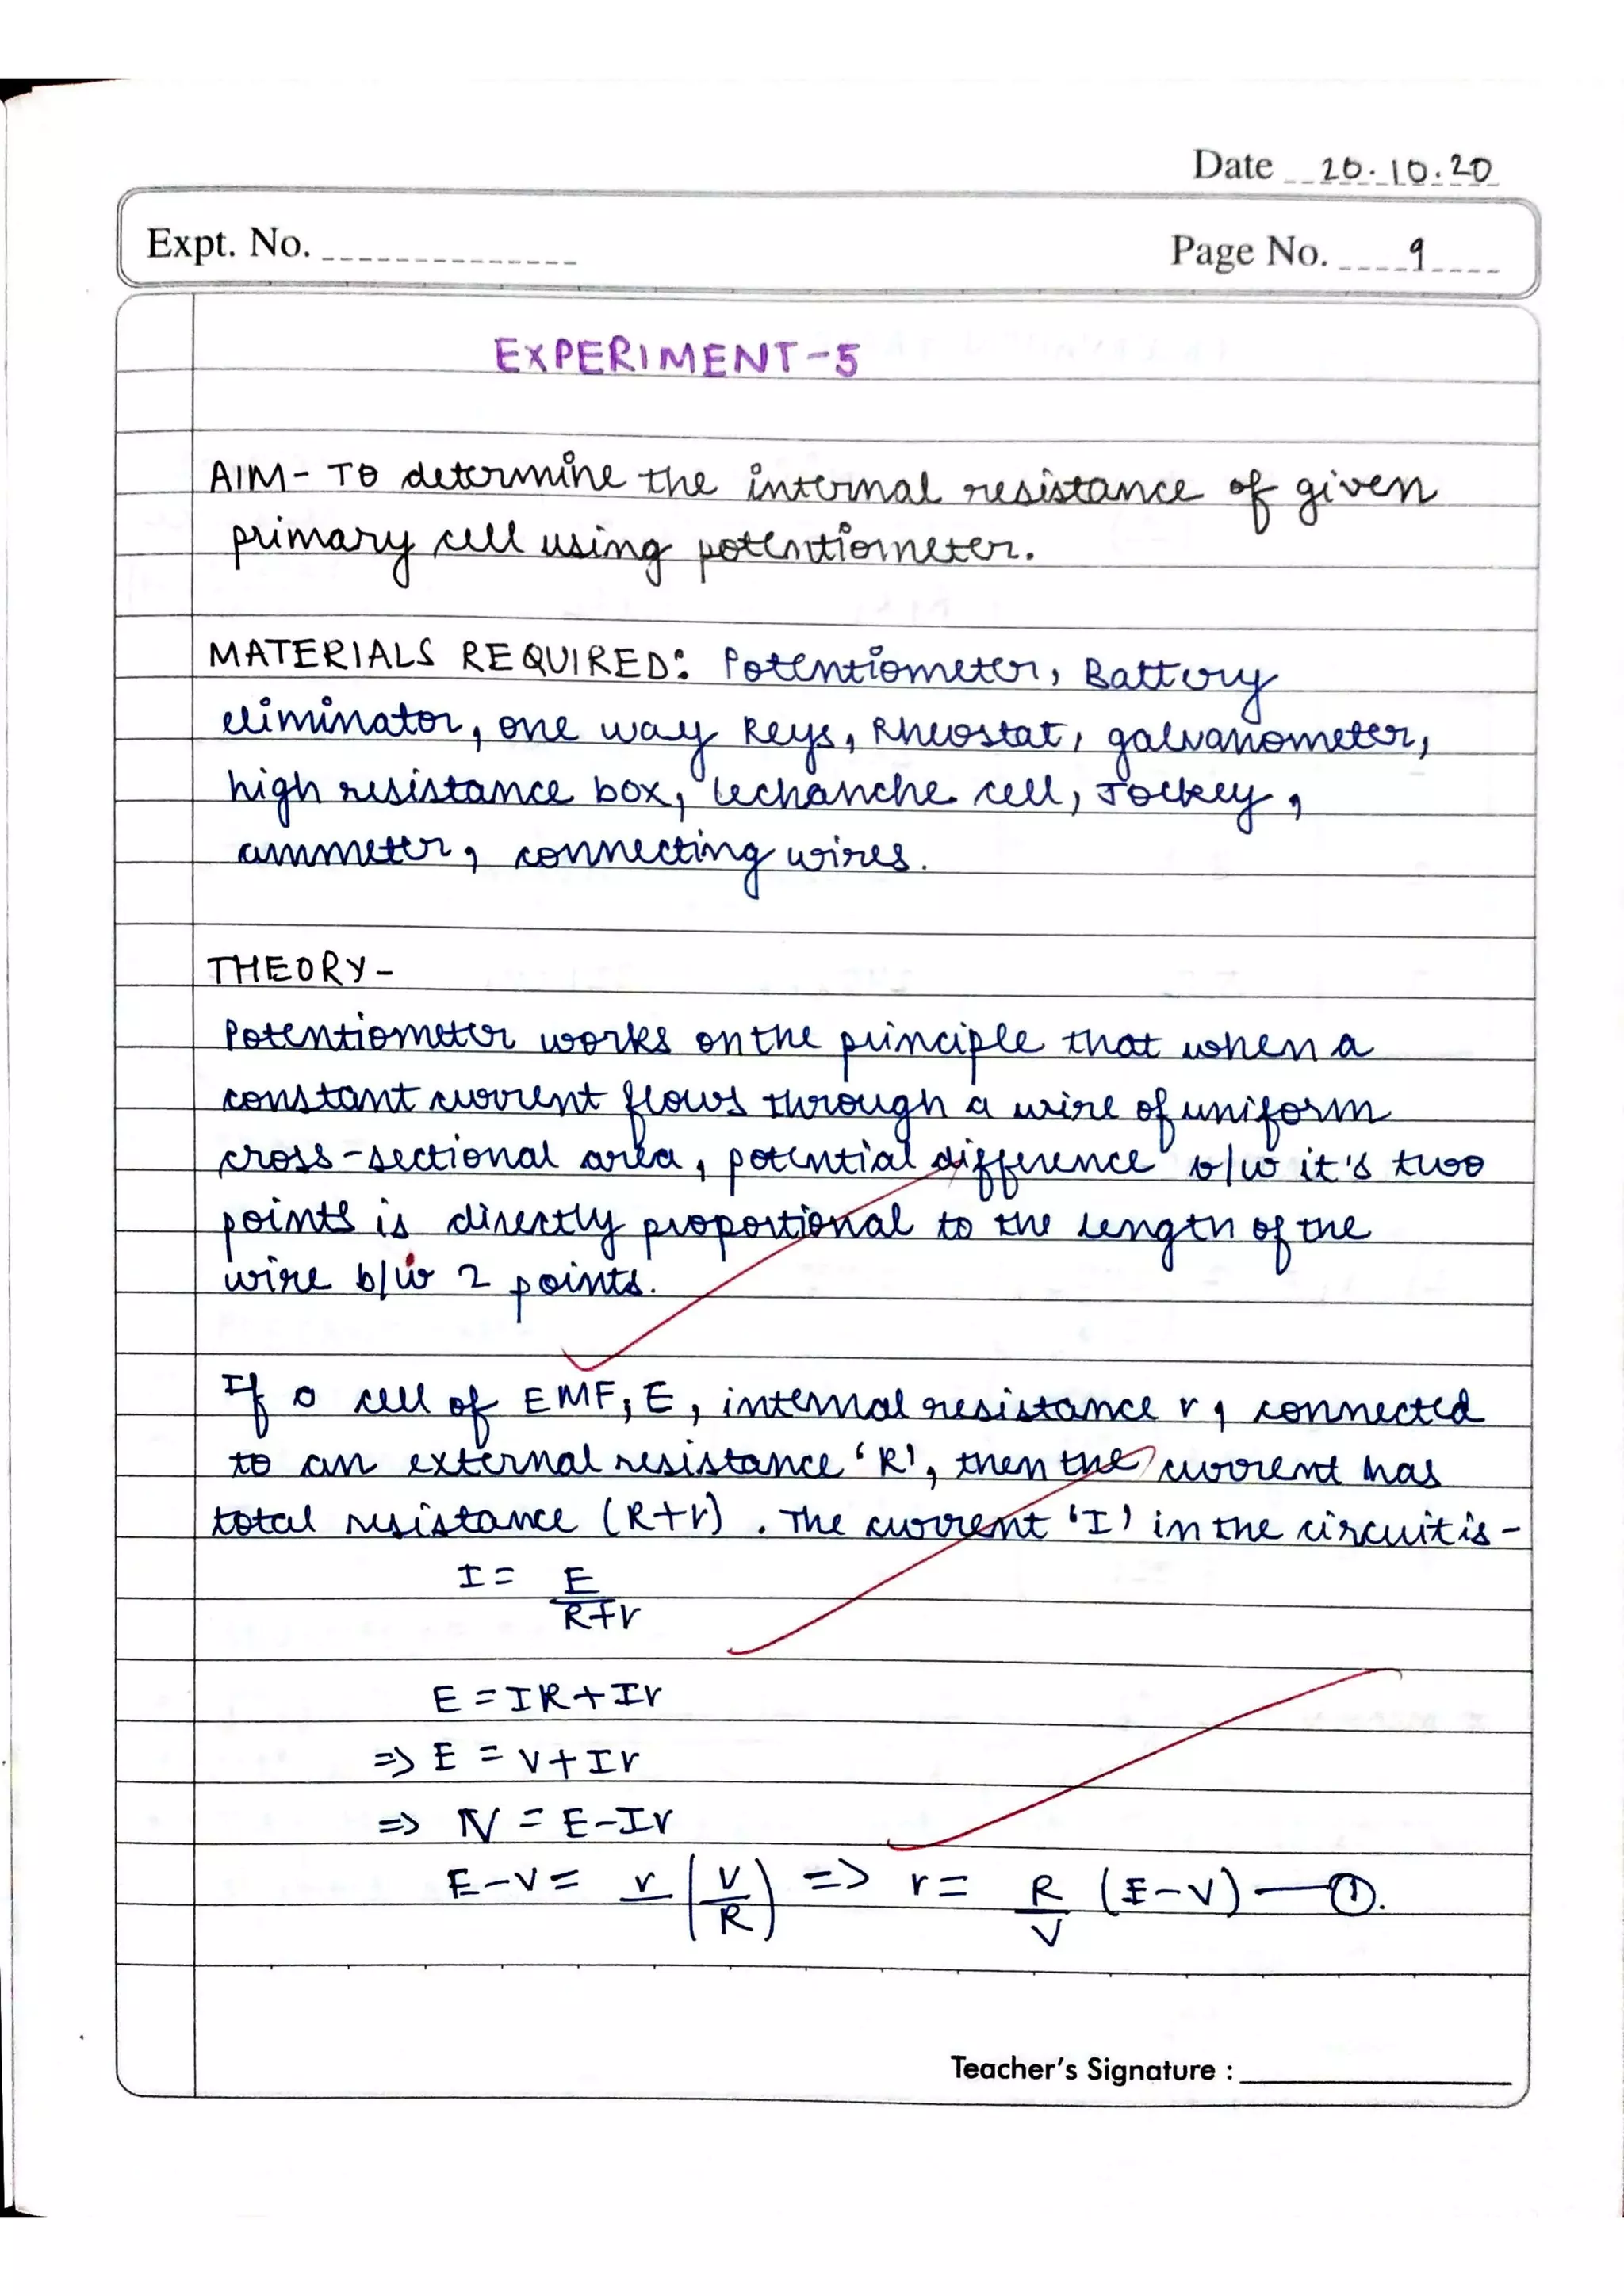 Date 20.10.20
Expt. No.
Page No. 9
EXPERIMENT-5
AIM- To determine the internal resistance of given
primary cell using potentiometer.
MATERIALS REQUIRED: Potentiometer, Battery
eliminator, one way keys, Rheostat, galvanometer,
high resistance box, lechanche cell, Jockey,
ammeter, connecting wires.
THEORY-
Potentiometer works on the principle that when a
constant current flows through a wire of uniform
cross-sectional area, potential difference b/w it's two
points is directly proportional to the length of the
wire b/w 2 points.
If a cell of EMF, E, internal resistance r, connected
to an external resistance 'R', then the current has
total resistance (R+r). The current 'I' in the circuit is-
I = E/R+r
E = IR+Ir
=> E = V+Ir
=> V = E-Ir
E-V = r (V/R) => r = R/V (E-V) — ①.
Teacher's Signature :